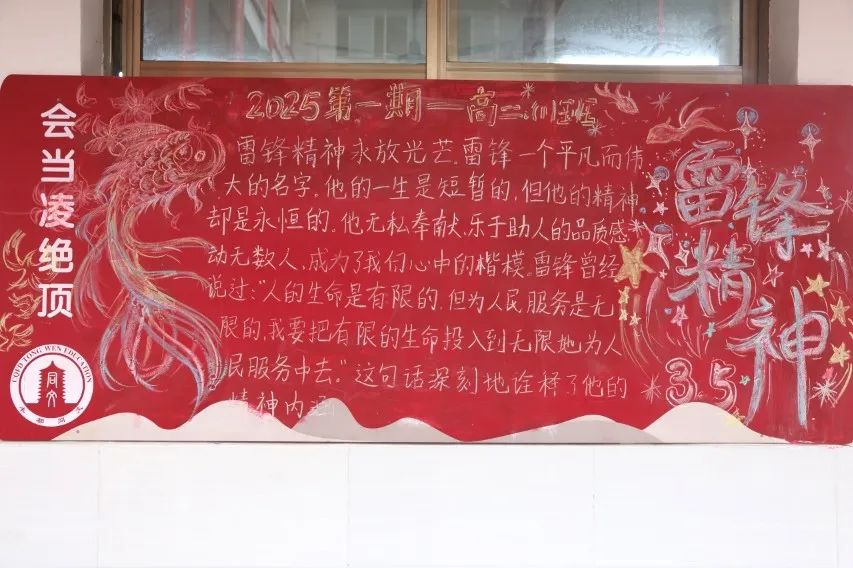 会当凌绝顶
2025第一期——高二
雷锋精神永放光艺.雷锋一个平凡而伟
大的名字.他的一生是短暂的,但他的精神
却是永恒的。他无私奉献、乐于助人的品质感
动无数人,成为了我们心中的楷模。雷锋曾经
说过:“人的生命是有限的,但为人民服务是无
限的,我要把有限的生命投入到无限地为人
民服务中去。”这句话深刻地诠释了他的
精神内涵
雷锋
精神
3.5
TONG WEN EDUCATION
同文